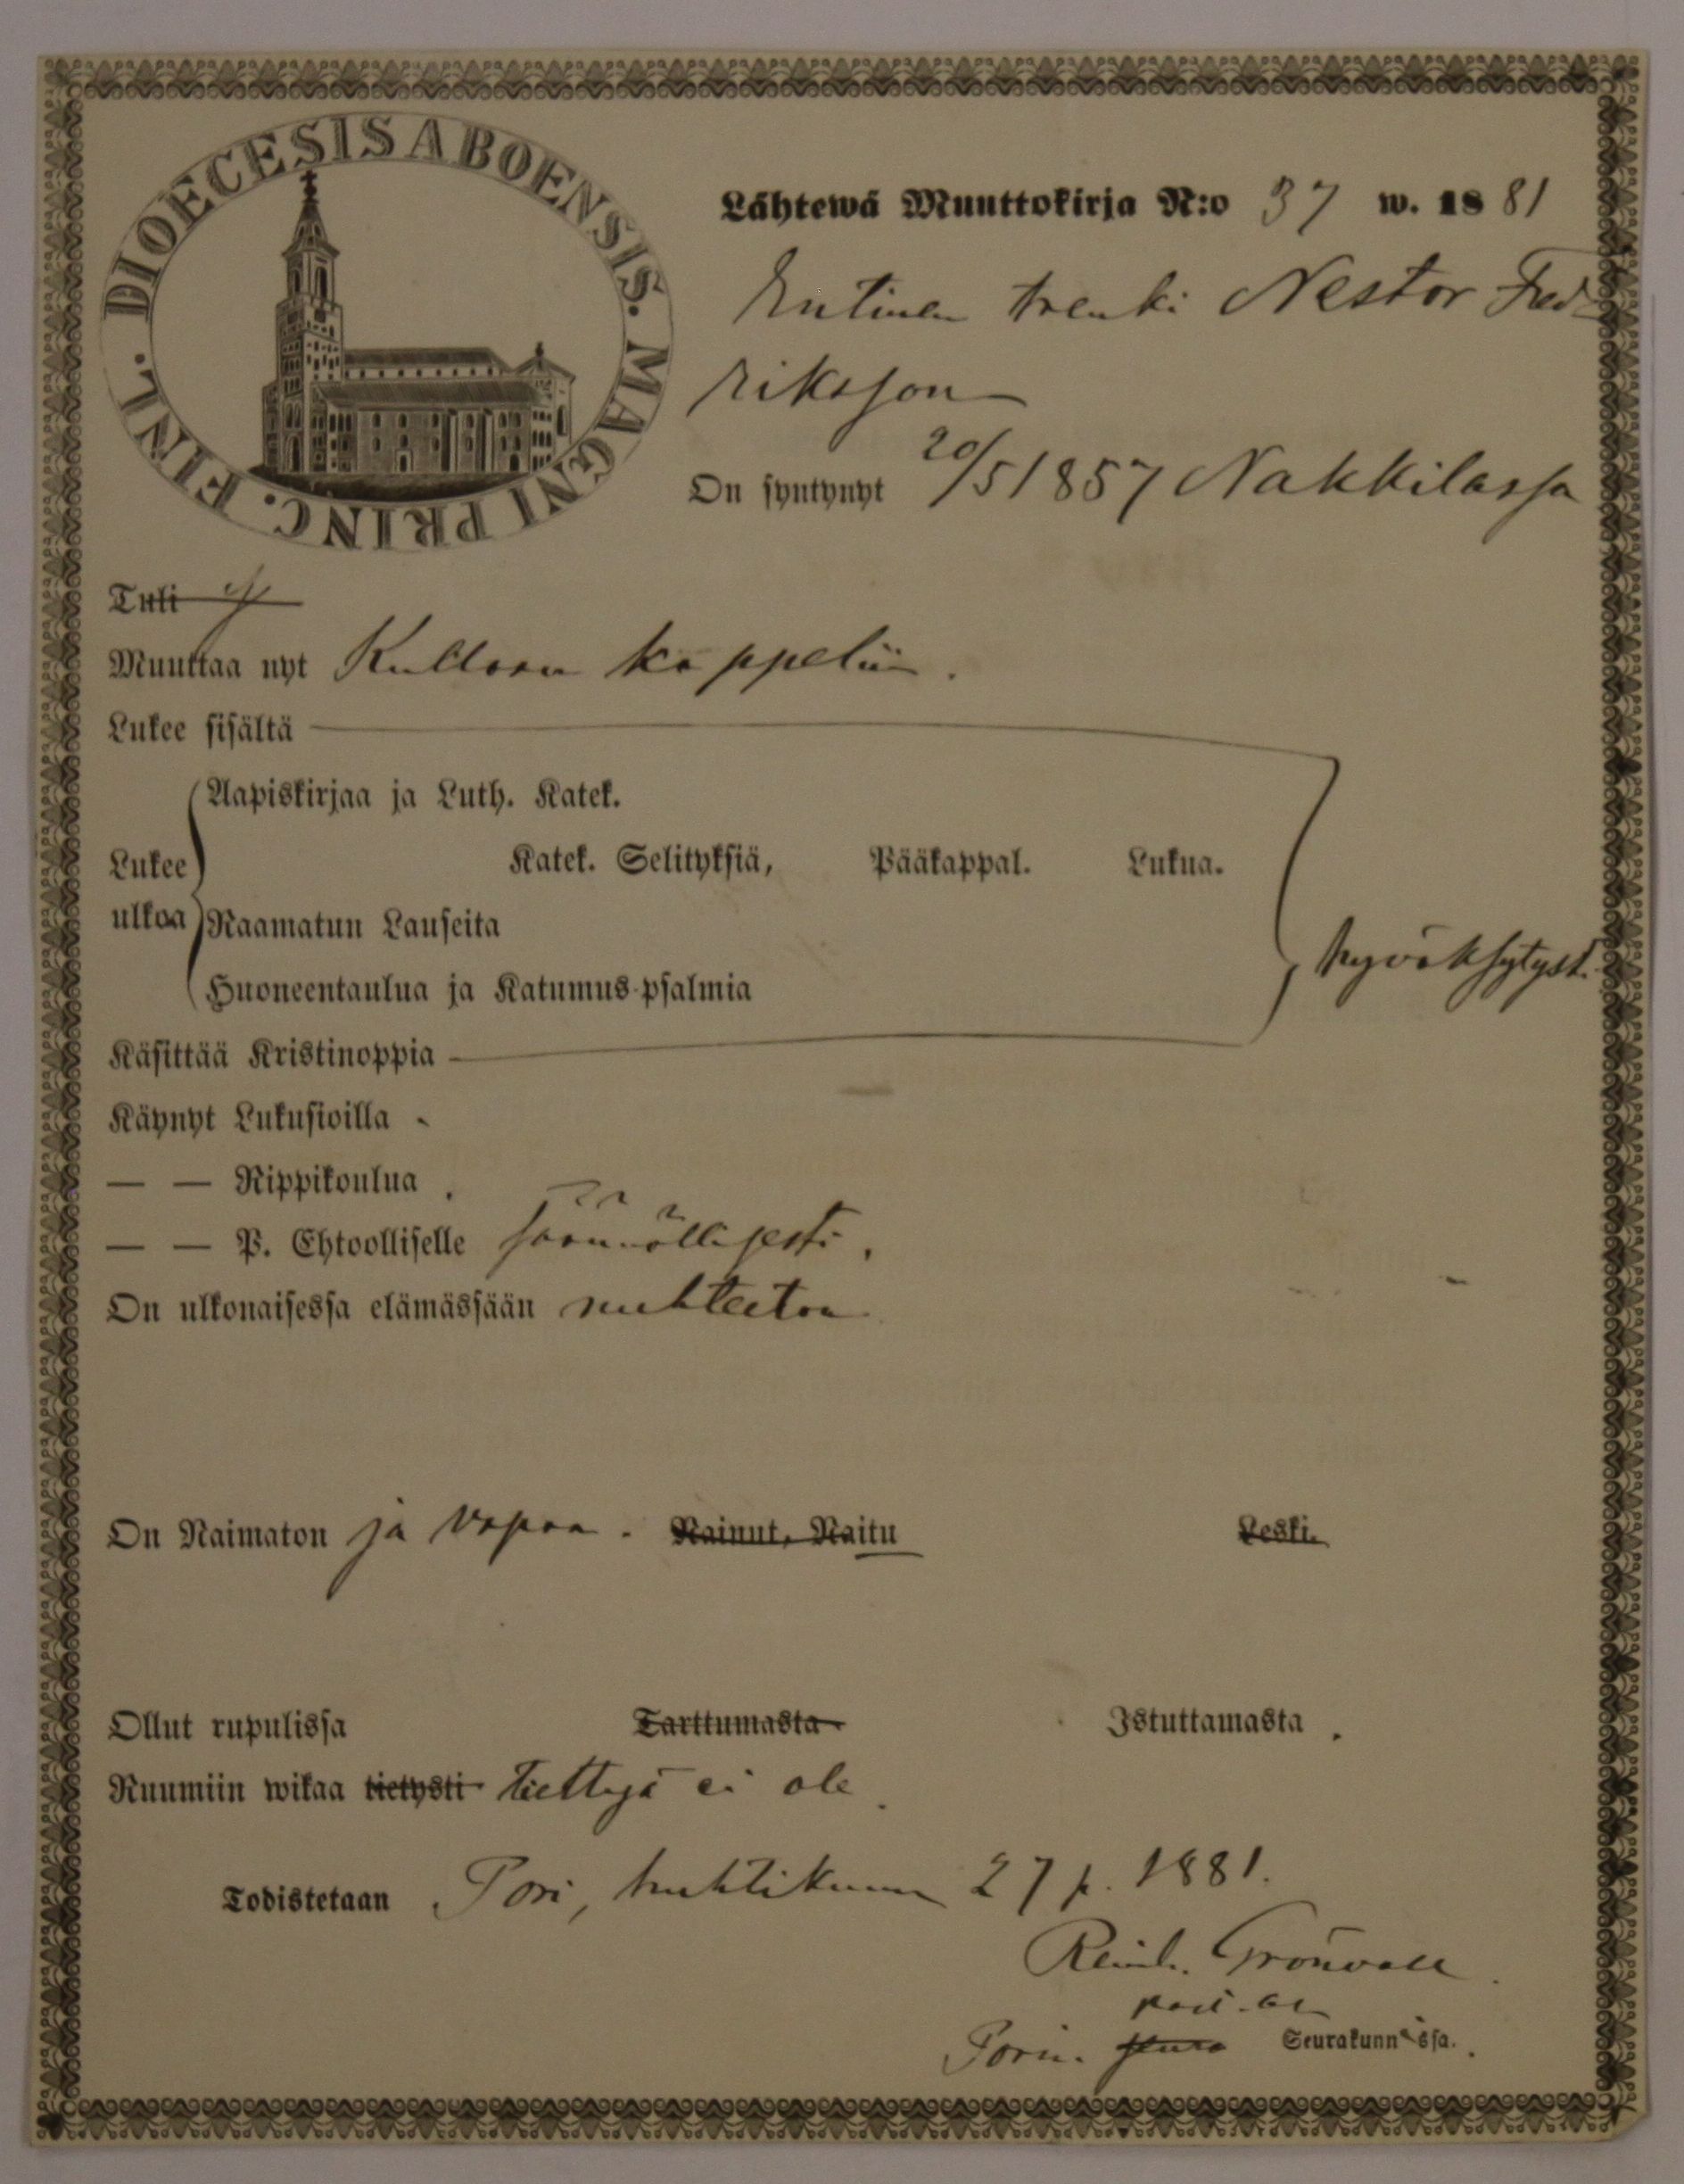 DIOECESIS ABOENSIS. MAGNI PRINC. FINL.
Lähtewä Muuttokirja N:o 37 w. 1881
Entinen trenki Nestor Fred-
riksson
On syntynyt 20/5 1857 Nakkilassa
Tuli
Muuttaa nyt Kullaan kappeliin.
Lukee sisältä
Aapiskirjaa ja Luth. Katek.
Lukee Katek. Selityksiä, Pääkappal. Lukua.
ulkoa Raamatun Lauseita
hyväksytysti.
Huoneentaulua ja Katumus-psalmia
Käsittää Kristinoppia
Käynyt Lukusioilla
— — Rippikoulua
— — P. Ehtoolliselle säännöllisesti.
On ulkonaisessa elämässään nuhteeton
On Naimaton ja vapaa. Nainut, Naitu Leski.
Ollut rupulissa Tarttumasta Istuttamasta.
Ruumiin wikaa tietysti tiettyä ei ole.
Todistetaan Pori, huhtikuun 27 p. 1881.
Reinh. Grönvall.
Porin. Seurakunnissa.